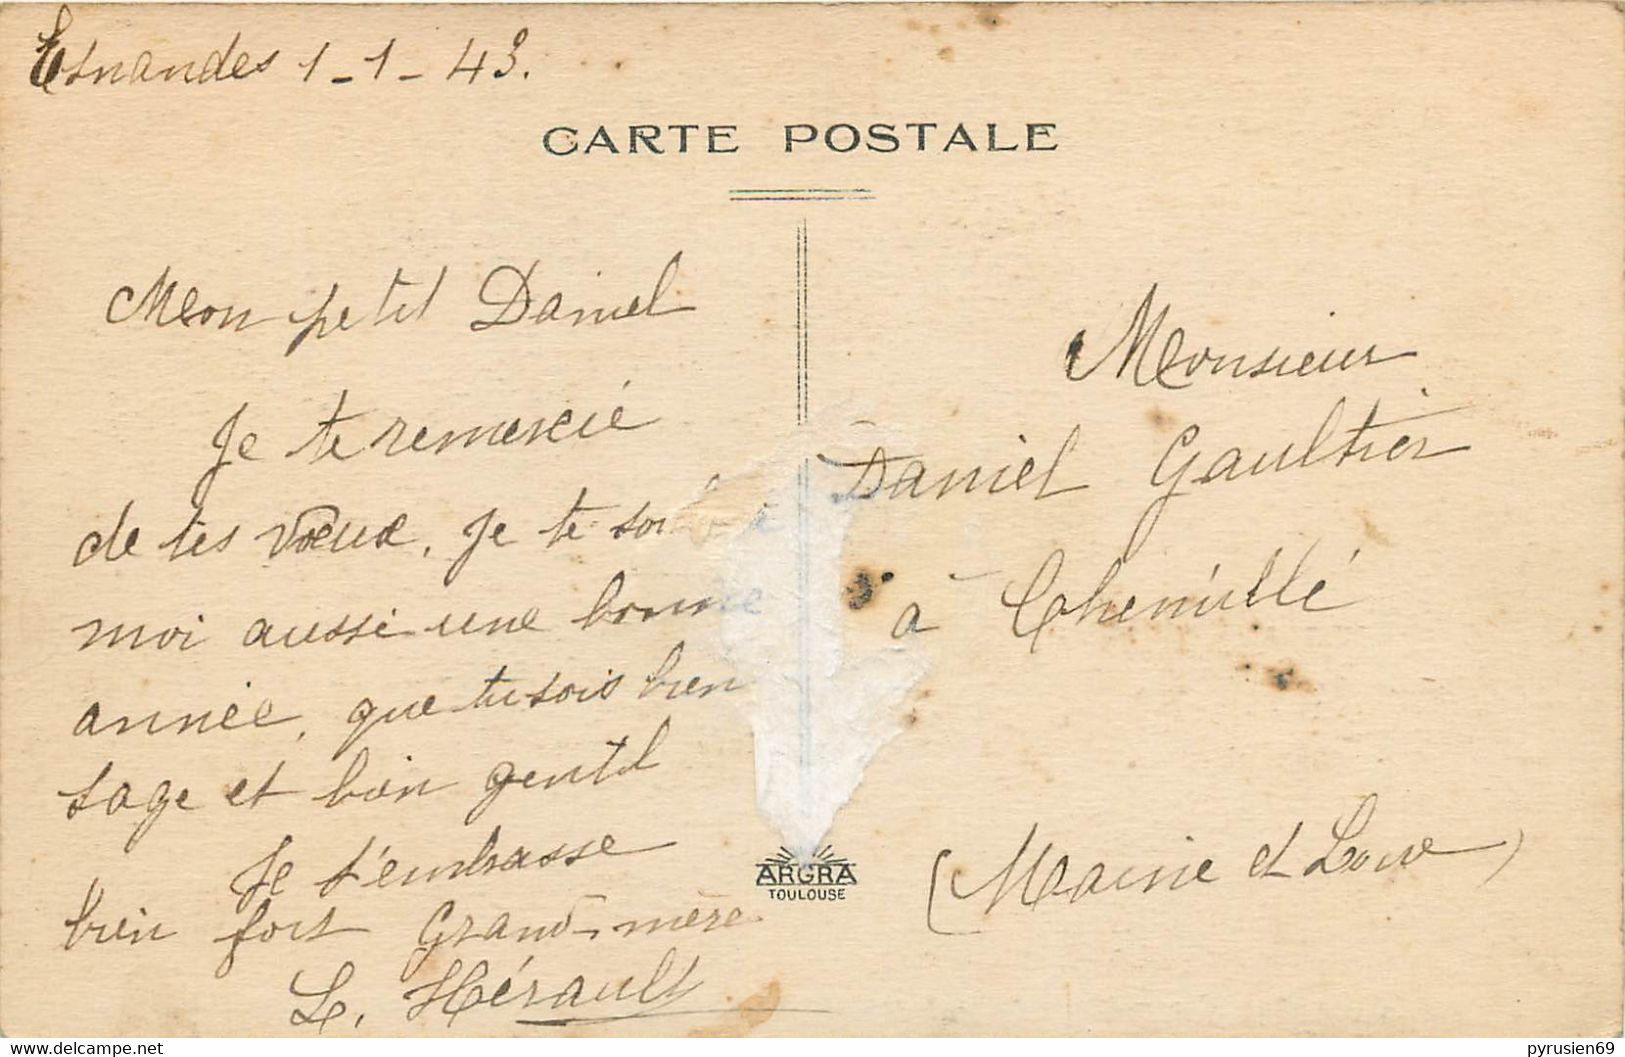 Esnandes 1-1-43.
CARTE POSTALE
Mon petit Daniel
Je te remercie
de tes vœux, je te
moi aussi une bonne
année, que tu sois bien
sage et bien gentil
Je t'embrasse
bien fort Grand-mère
L. Hérault
Monsieur
Daniel Gaultier
à Chemillé
(Maine et Loire)
ARGRA
TOULOUSE
delcampe.net
pyrusien69